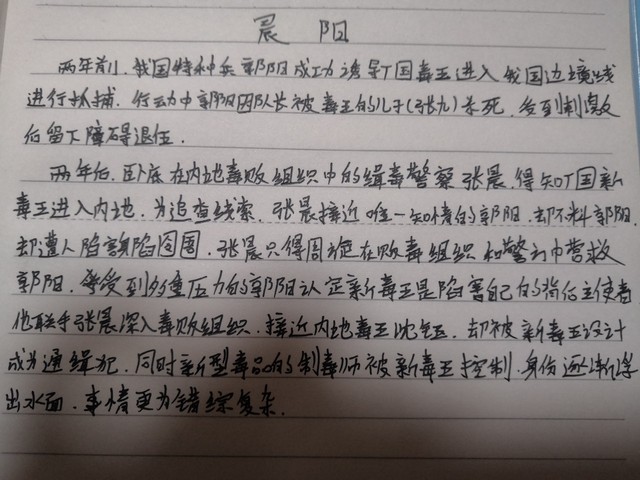 晨阳
两年前,我国特种兵郭阳成功诱导T国毒王进入我国边境线
进行抓捕.行动中郭阳因队长被毒王的儿子(张九)杀死,受到刺激
后留下障碍退伍.
两年后,卧底在内地毒贩组织中的缉毒警察张晨,得知T国新
毒王进入内地,为追查线索,张晨接近唯一知情的郭阳,却不料郭阳
却遭人陷害陷囹圄,张晨只得周旋在贩毒组织和警方中营救
郭阳,承受到多重压力的郭阳认定新毒王是陷害自己的背后主使者
他联手张晨深入毒贩组织,接近内地毒王沈钰,却被新毒王设计
成为通缉犯,同时新型毒品的制毒师被新毒王控制,身份逐渐浮
出水面,事情更为错综复杂.